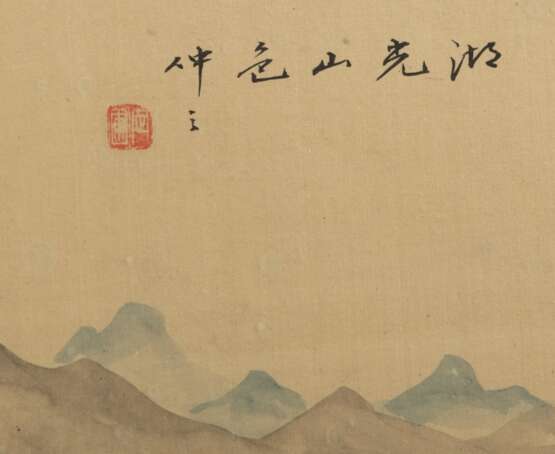 湖光山色
仲